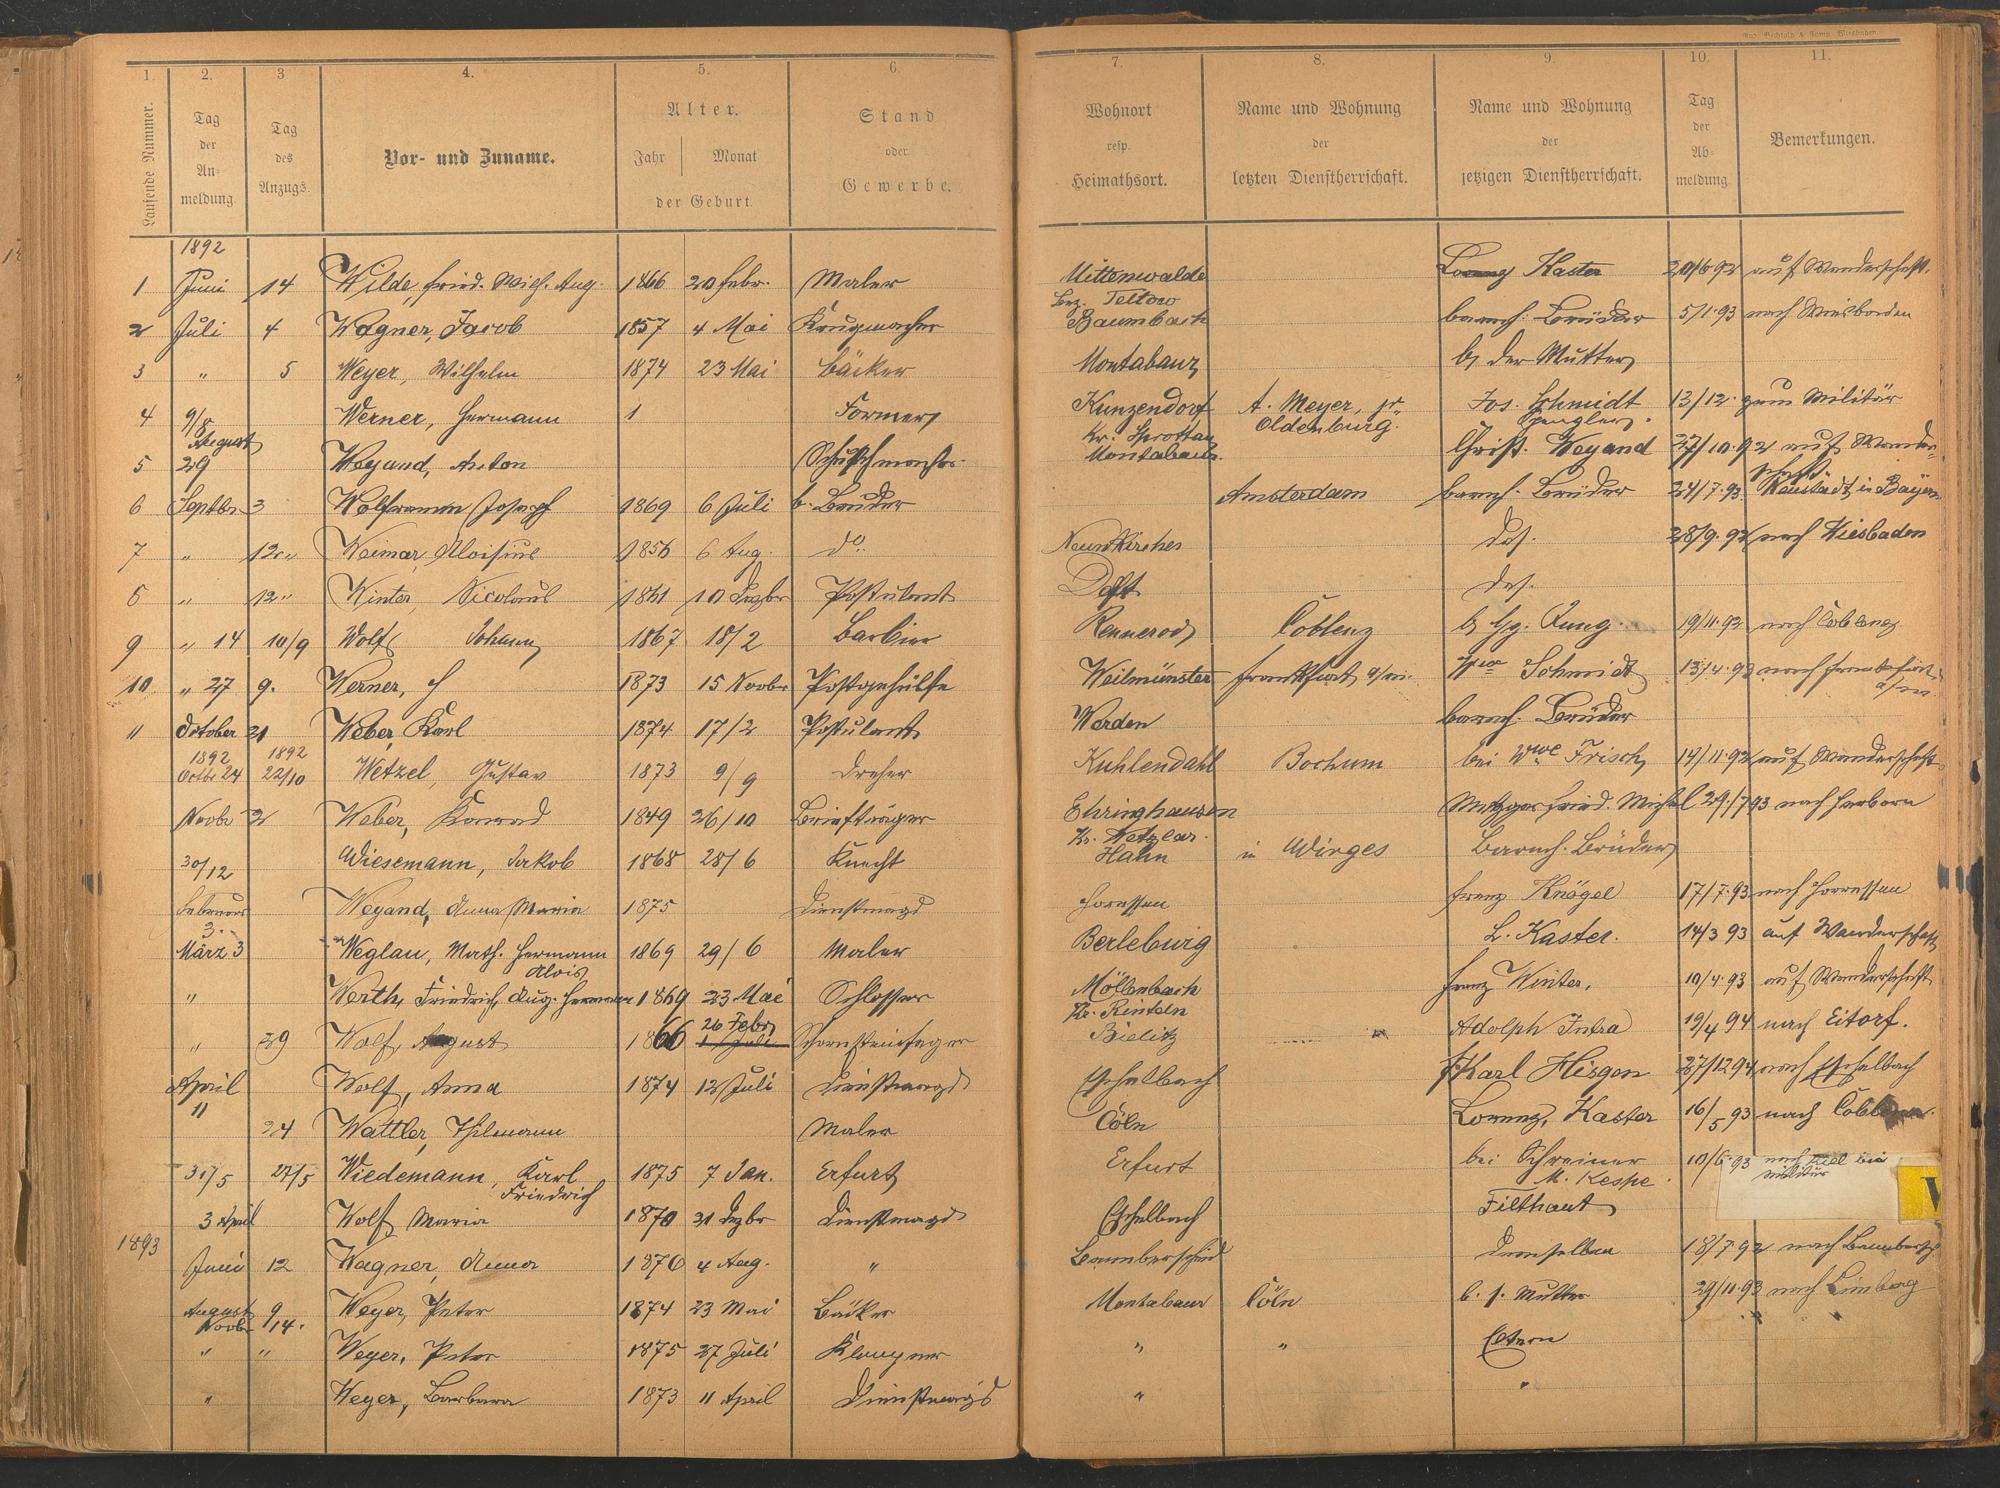 Aug. Bechtold & Comp. Wiesbaden
1. 2. 3 4. 5. 6 7. 8. 9. 10. 11.
Laufende Nummer.
Tag der An-meldung
Tag des Anzugs.
Vor- und Zuname.
Alter.
Jahr Monat
der Geburt.
Stand oder Gewerbe.
Wohnort resp. Heimathsort.
Name und Wohnung der letzten Dienstherrschaft.
Name und Wohnung der jetzigen Dienstherrschaft.
Tag der Ab-meldung
Bemerkungen.
1892
1 Juni 14 Wilde, Fried. Wilh. Aug. 1866 20 Febr. Maler Mittenwalde Bez. Teltow Lorenz Kaster 20/6 92 auf Wanderschaft.
2 Juli 4 Wagner, Jacob 1857 4 Mai Krugmacher Baumbach barmh. Brüder 5/1.93 nach Wiesbaden
3 " 5 Weyer, Wilhelm 1874 23 Mai Bäcker Montabaur b. der Mutter
4 9/8 Werner, Hermann 1 Former Kunzendorf Kr. Sprottau A. Meyer, jr. Oldenburg. Jos. Schmidt Spengler. 13/12. zum Militär
5 August 29 Weyand, Anton Schuhmacher Montabaur. Christ. Weyand 27/10.92 auf Wanderschaft.
6 Septbr. 3 Wolframm Joseph 1869 6 Juli b. Bruder Amsterdam barmh. Brüder 24/7.93. Neustadt in Bayern
7 " 12 " Weimar, Aloisius 1856 6 Aug. do. Neunkirchen das. 28/9.92 nach Wiesbaden
8 " 12 " Winter, Nicolaus 1861 10 Dezbr Postulant das.
9 " 14 10/9 Wolf, Johann 1867 18/2 Barbier Rennerod Coblenz b Hg. Jung 19/11.92 nach Coblenz
10 " 27 9. Werner, 1873 15 Novbr Postgehülfe Weilmünster Frankfurt a/m. Wwe Schmidt 13/4.93 nach Frankfurt a/m
11 October 21 Weber, Karl 1874 17/2 Postulant Werden barmh. Brüder
1892 Octbr 24 1892 22/10 Wetzel, Gustav 1873 9/9 Dreher Kuhlendahl Bochum bei Wwe Frisch 14/11.92 auf Wanderschaft
Novbr 2 Weber, Konrad 1849 26/10 Briefträger Ehringhausen Kr. Wetzlar. Metzger Fried. Michel 29/7 93 nach Herborn
30/12 Wiesemann, Jakob 1868 28/6 Knecht Hahn in Wirges Barmh. Brüder
Februar 3. Weyand, Anna Maria 1875 Dienstmagd Horressen Franz Knögel 17/7.93 nach Horressen
März 3 Weglau, Math. Hermann Alois 1869 29/6 Maler Berleburg L. Kaster. 14/3 93 auf Wanderschaft
" Werth, Friedrich, Aug. Hermann 1869 23 Mai Schlosser Möllenbach Kr. Rinteln Franz Winter. 10/4.93 auf Wanderschaft
" 29 Wolf, August 1866 26 Febr 1 Juli Schornsteinfeger Bielitz Adolph Intra 19/4 94 nach Eitorf.
April 11 Wolf, Anna 1874 12 Juli Dienstmagd Eschelbach Karl Hisgen 27/12 94 nach Eschelbach
24 Wattler, Thilmann Maler Cöln Lorenz Kaster 16/5 93 nach
31/5 27/5 Wiedemann, Karl Friedrich 1875 7 Jan. Erfurt Erfurt bei Schreiner M. Kespe. 10/6.93 Militär
3 April Wolf, Maria 1870 21 Dezbr Dienstmagd Eschelbach Filthaut
1893
Juni 12 Wagner, Anna 1876 4 Aug. " denselben 18/7.92
August 9 Weyer, Peter 1874 23 Mai Bäcker Montabaur Cöln b. s. Mutter 29/11.93 nach Limburg
Novbr 14.
" " Weyer, Peter 1875 27 Juli Klempner " " Eltern
" Weyer, Barbara 1873 11 April Dienstmagd " "